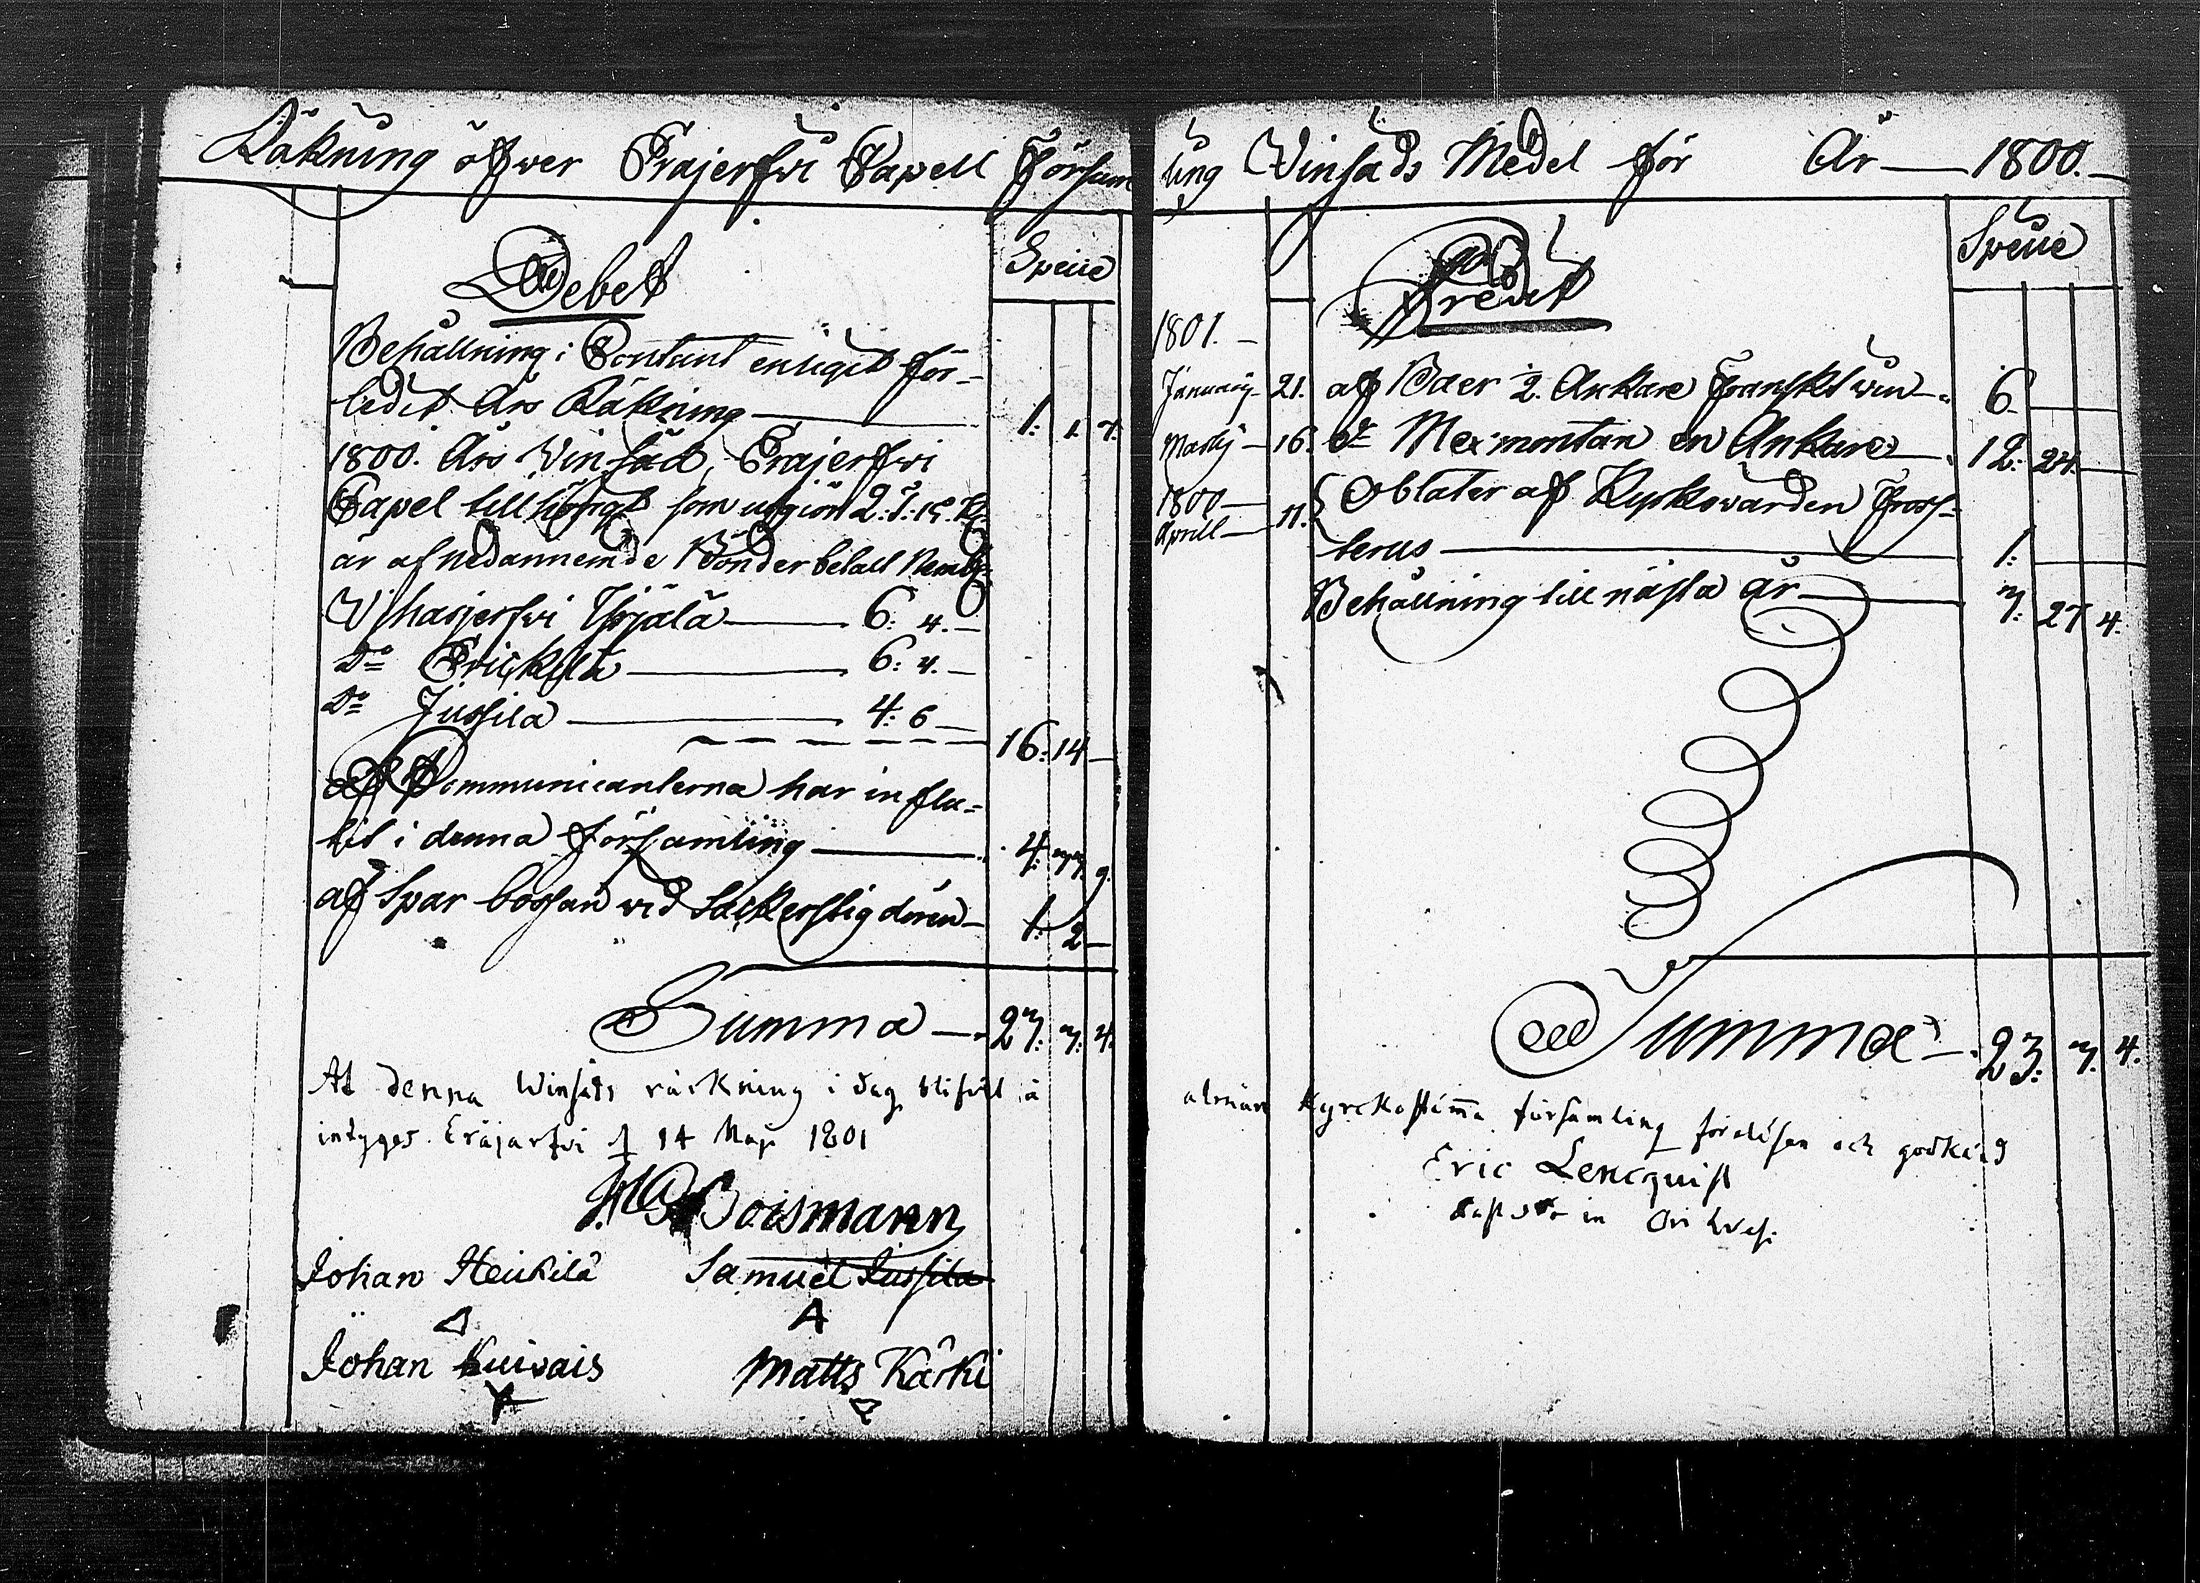 Räkning öfwer Erajerfwi Capell Församling Winsäds Medel för År — 1800.
Debet
Specie
Behållning i Contant enligit för-
ledit Års Räkning — 1. 1. 7.
1800. Års Vinsäd, Erajerfwi
Capel tillhörigt som utgiör 2. T. 15. K.
är af nedannemde Bönder betalt Neml:
Vihasjerfwi Yrjälä — 6: 4. —
Do Erickilä — 6: 4. —
Do Jussila — 4: 6 —
16: 14 —
Af Communicanterna har influ-
tit i denna församling — 4: 37. 9.
af Spar bössan wid Sackerstig dören — 1: 2 —
Summa — 23: 7: 4.
At denna Winsäds räckning i dag blifvit å
intyges. Eräjärfvi d 14 Maji 1801
Boismann
Johan Heickilä Samuel Jussila
Johan Kuivais Matts Kärki
Credit
Specie
1801. —
Januarij — 21. af Baer 2. Ankare Franskt win — 6. —
Martij — 16. do Mexmontan en Ankare — 12: 24. —
1800 —
Aprill — 11. Oblater af Kyrkovärden Fross-
terus — 1: —
Behållning till nästa år — 3: 27 4.
Summa — 23: 7. 4.
almän Kyrckostämma församling föreläsen och godkänd
Eric Lencquist
Pastor in Orihves.